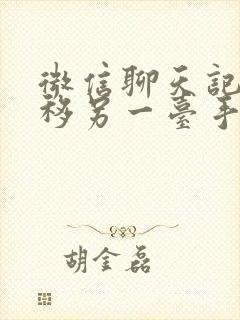 微信聊天記
移另一臺手
胡金磊